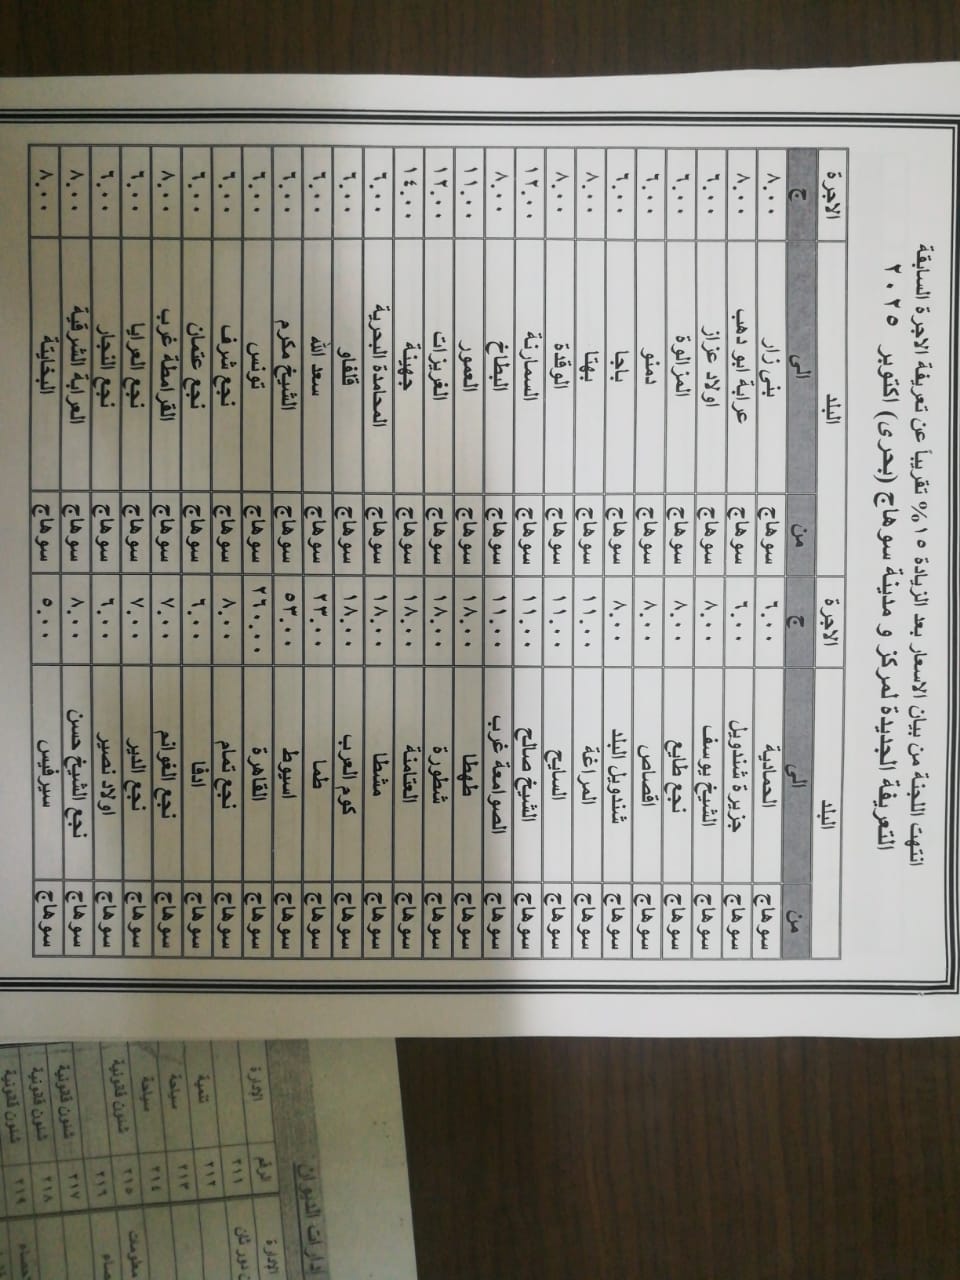 انتهت اللجنة من بيان الاسعار بعد الزيادة ١٥% تقريباً عن تعريفة الاجرة السابقة
التعريفة الجديدة لمركز و مدينة سوهاج (بحرى) اكتوبر ٢٠٢٥
البلد الاجرة البلد الاجرة
من الى ج من الى ج
سوهاج الحمادية ٦.٠٠ سوهاج بنى زار ٨.٠٠
سوهاج جزيرة شندويل ٦.٠٠ سوهاج عرابة ابو دهب ٨.٠٠
سوهاج الشيخ يوسف ٨.٠٠ سوهاج اولاد عزاز ٦.٠٠
سوهاج نجع طايع ٨.٠٠ سوهاج المزالوة ٦.٠٠
سوهاج اقصاص ٨.٠٠ سوهاج دمنو ٦.٠٠
سوهاج شندويل البلد ٨.٠٠ سوهاج باجا ٦.٠٠
سوهاج المراغة ١١.٠٠ سوهاج بهتا ٨.٠٠
سوهاج السايح ١١.٠٠ سوهاج الوقدة ٨.٠٠
سوهاج الشيخ صالح ١١.٠٠ سوهاج السمارنة ١٢.٠٠
سوهاج الصوامعة غرب ١١.٠٠ سوهاج البطاخ ٨.٠٠
سوهاج طهطا ١٨.٠٠ سوهاج العمور ١١.٠٠
سوهاج شطورة ١٨.٠٠ سوهاج الغريزات ١٢.٠٠
سوهاج العتامنة ١٨.٠٠ سوهاج جهينة ١٤.٠٠
سوهاج مشطا ١٨.٠٠ سوهاج المحامدة البحرية ٦.٠٠
سوهاج كوم العرب ١٨.٠٠ سوهاج قلفاو ٦.٠٠
سوهاج طما ٢٣.٠٠ سوهاج سعد الله ٦.٠٠
سوهاج اسيوط ٥٣.٠٠ سوهاج الشيخ مكرم ٦.٠٠
سوهاج القاهرة ٢٦٠.٠٠ سوهاج تونس ٦.٠٠
سوهاج نجع تمام ٨.٠٠ سوهاج نجع شرف ٦.٠٠
سوهاج ادفا ٦.٠٠ سوهاج نجع عتمان ٦.٠٠
سوهاج نجع الغوانم ٧.٠٠ سوهاج القرامطة غرب ٨.٠٠
سوهاج نجع الدير ٧.٠٠ سوهاج نجع العرايا ٦.٠٠
سوهاج اولاد نصير ٦.٠٠ سوهاج نجع النجار ٦.٠٠
سوهاج نجع الشيخ حسن ٨.٠٠ سوهاج العرابة الشرقية ٨.٠٠
سوهاج سيرفيس ٥.٠٠ سوهاج البخايتة ٨.٠٠
ادارات الديوان
الإدارة الرقم الإدارة
٢١١
٢١٢ تنمية
٢١٣ سياحة
٢١٤ سياحة
٢١٥ شئون قانونية
٢١٦
٢١٧ شئون قانونية
٢١٨ شئون قانونية
٢١٩ شئون قانونية